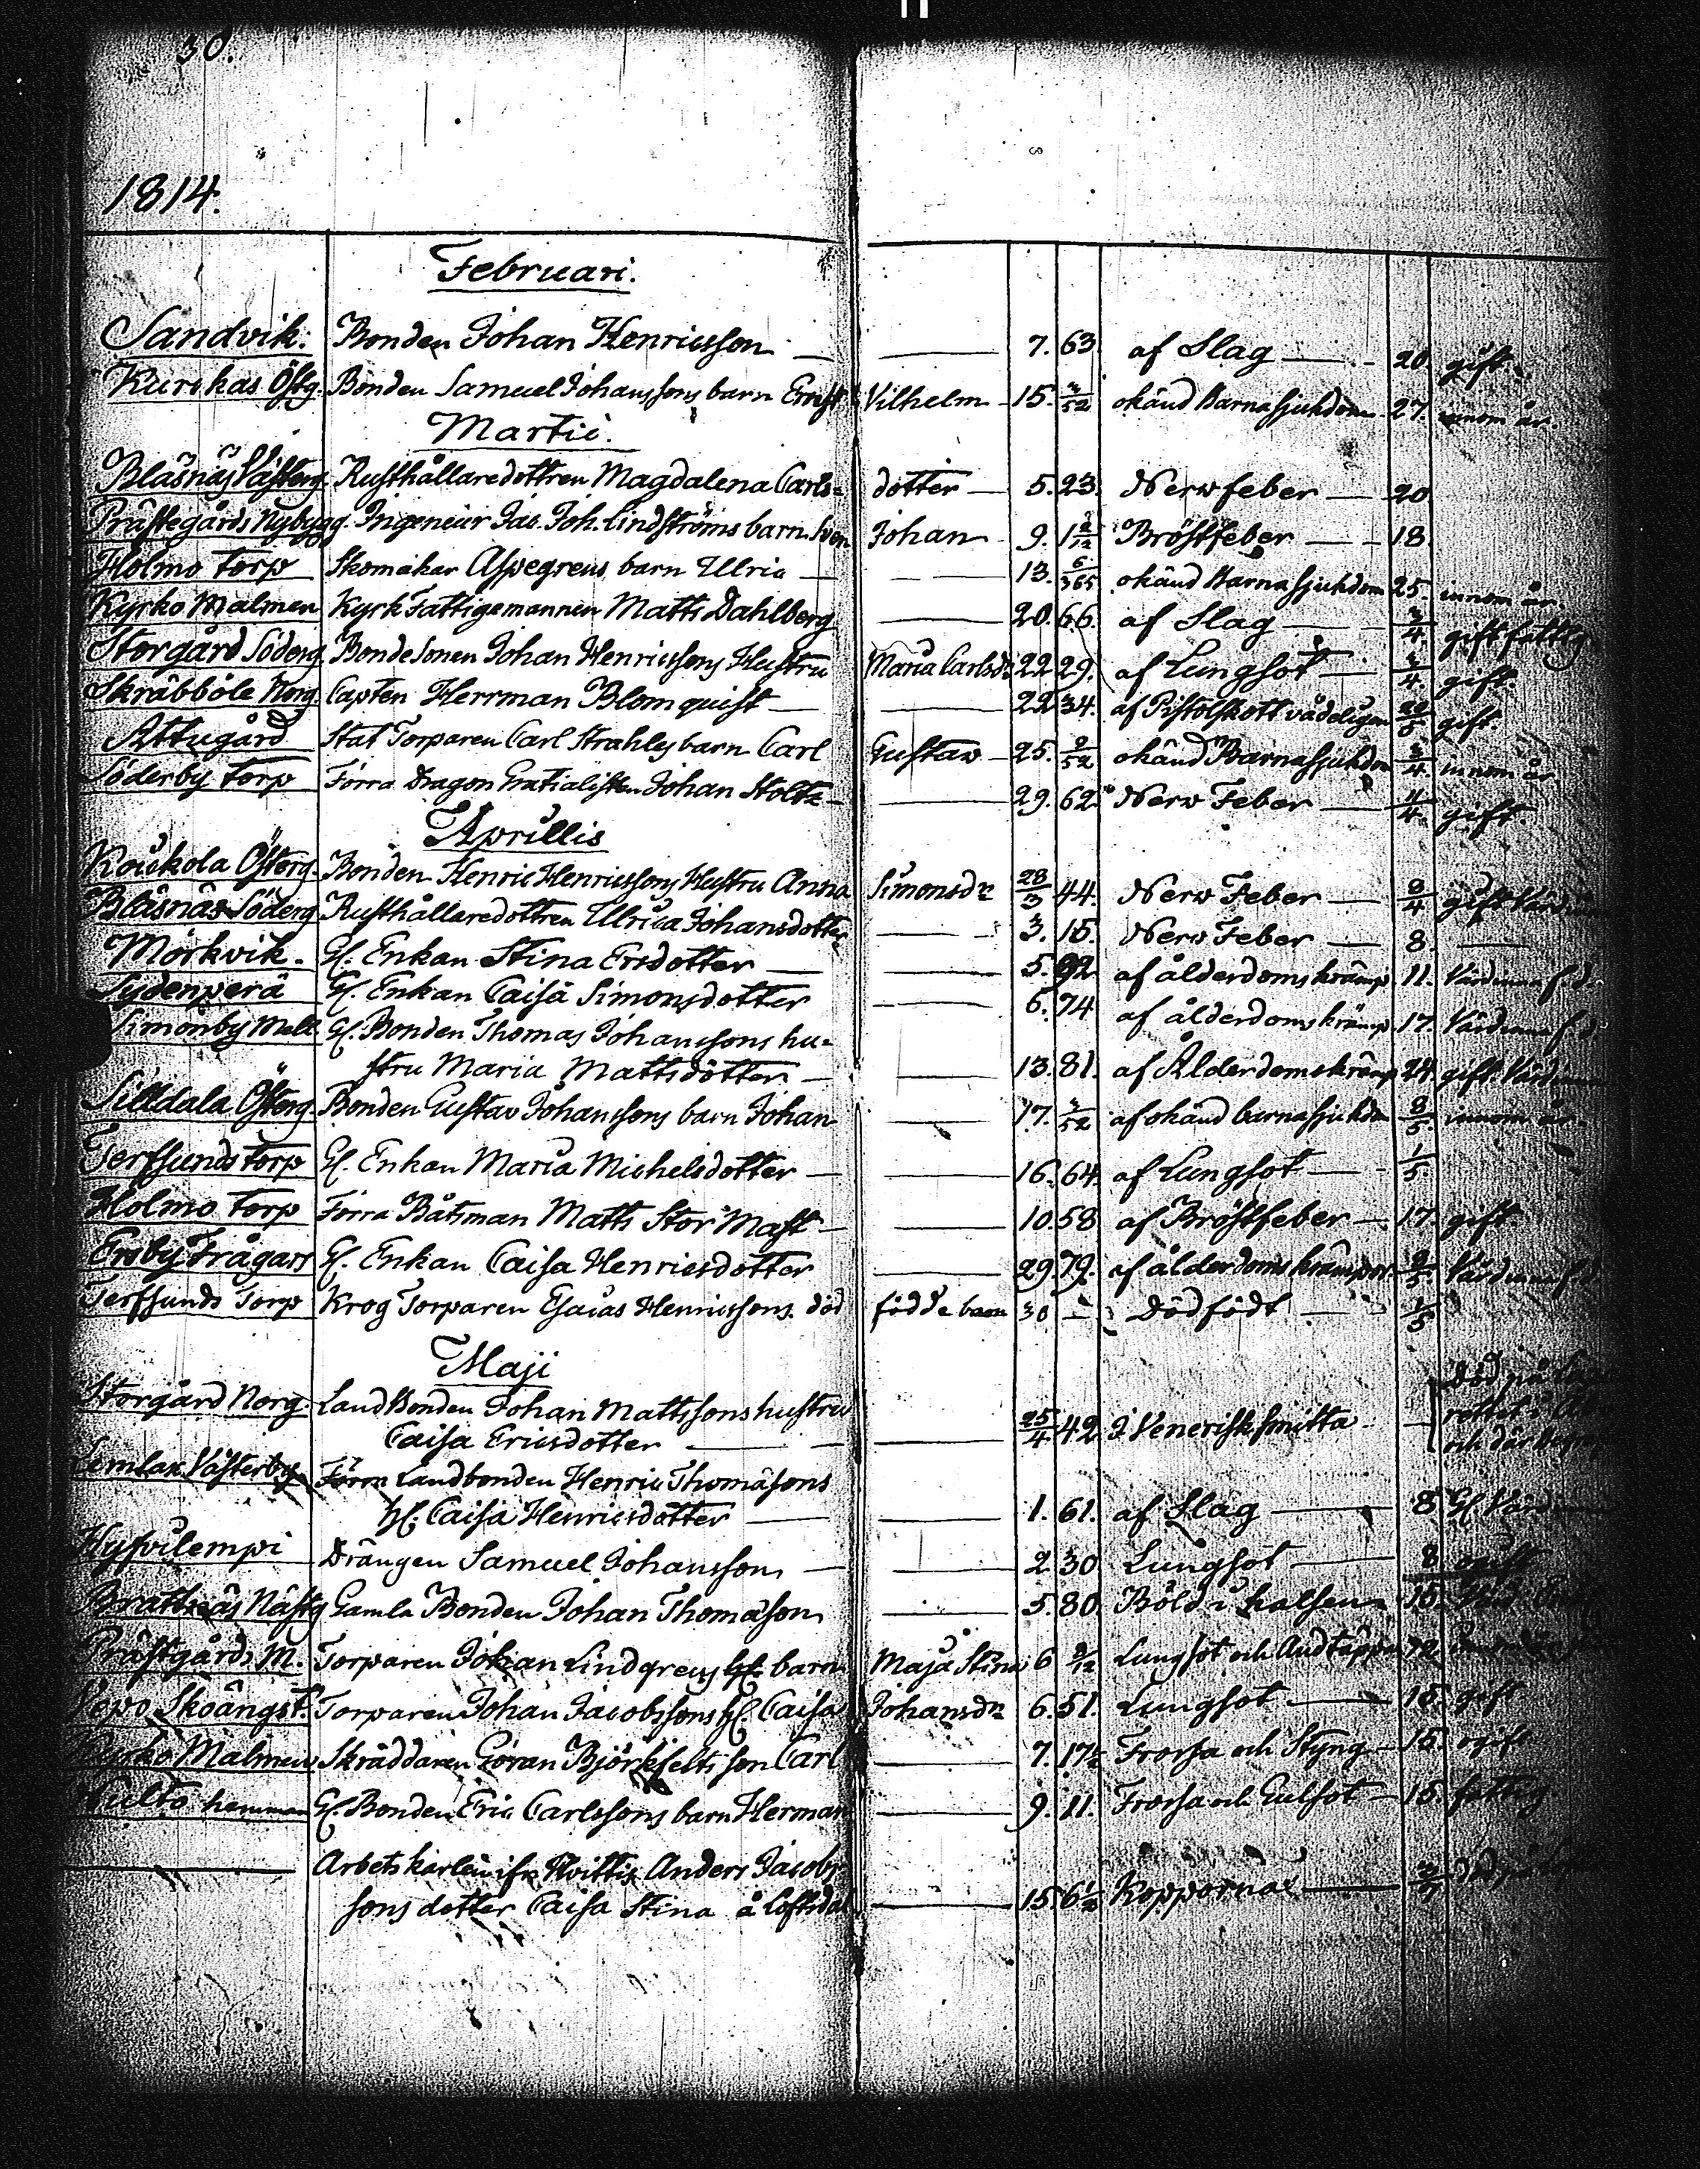 30.
1814.
Februari.
Sandvik. Bonden Johan Henricsson — — 7. 63. af Slag — 20. gift.
Kurckas Östg. Bonden Samuel Johanssons barn Ernst Vilhelm 15. 3/52 okänd Barnasjukdom 27. innom år.
Martii.
Bläsnäs Västerg. Rusthållaredottren Magdalena Carls= dotter — 5. 23. Nervfeber — 20
Prästegårds Nybygg. Ingenieur Jac. Joh. Lindströms barn Sven Johan 9. 1 2/12 Bröstfeber — 18.
Holmo torp Skomakar Aspegrens barn Ulrica — — 13. 6/365 okänd Barnasjukdom 25. innom år.
Kyrko Malmen Kyrk Fattigemannen Matts Dahlberg — 20. 66. af Slag — 3/4. gift fattig
Storgård Söderg. Bondesonen Johan Henricssons Hustru Maria Carlsdr 22 29. af Lungsot — 3/4. gift.
Skräbböle Norg. Capten Herrman Blomquist — — 22 34. af Pistolskott vådeligen gift.
Attugård Stat Torparen Carl Strahles barn Carl Gustav — 25. 2/52 okänd Barnasjukdom 3/4. innom år
Söderby torp Förra Dragon Gratialisten Johan Stoltz — — 29. 62. Nerv Feber — 11/4. gift.
Aprillis
Kouskola Österg. Bonden Henric Henricssons Hustru Anna Simonsdr 28/3 44. Nerv Feber — 8/4 gift
Bläsnäs Söderg. Rusthållaredottren Ulrica Johansdotter — 3. 15. Nerv Feber — 8. —
Mörkvik. Gl. Enkan Stina Ersdotter — — 5. 92 af ålderdomskrämp. 11.
Sydenperä Gl. Enkan Caisa Simonsdotter — 6. 74 af ålderdomskrämp. 17.
Simonby Mell. Gl. Bonden Thomas Johanssons hu=
stru Maria Mattsdotter — — 13. 81. af Ålderdomskrämp 24. gift
Silldala Österg. Bonden Gustav Johanssons barn Johan — 17. 3/52 af okänd barnasjukdom 8/5. innom år.
Terfsunds torp Gl. Enkan Maria Michelsdotter — — 16. 64. af Lungsot — 1/5.
Holmo torp Förra Båtsman Matts Stor Mast — — 10. 58. af Bröstfeber — 17. gift
Ersby Frågars Gl. Enkan Caisa Henricsdotter — 29. 79. af ålderdomskrämpor
Terfsunds Torp Krog Torparen Esaias Henricssons död födde barn 30 — Dödfödt — 1/5
Maji
Storgård Norg. Land Bonden Johan Mattssons hustru
Caisa Ericsdotter — — 25/4 42 Venerisk smitta — död på
Lemlax Västerby Förra Landbonden Henric Thomasons
hl. Caisa Henricsdotter — — 1. 61. af Slag — 8
Hyfvilempi Drängen Samuel Johansson — — 2. 30 Lungsot — 8
Näsby Gamla Bonden Johan Thomason — 5. 80. Böld i halsen
Prästgårds M. Torparen Johan Lindgrens barn Maja Stina 6 9/12 Lungsot och Andtäppa
Skoängst. Torparen Johan Jacobssons hl. Caisa Johansdr 6. 51. Lungsot — 15. gift
Kyrko Malmen Skräddaren Göran Björkfelts son Carl — 7. 17½ Frossa och Styng — 15. ogift
hemman Gl. Bonden Eric Carlssons barn Herman — 9. 11. Frossa och Gulsot — 15. fattig
— Arbetskarlen ifr. Hvittis Anders Jacobs=
sons dotter Caisa Stina å Loftsdal — 15. 6½ Kopporna —